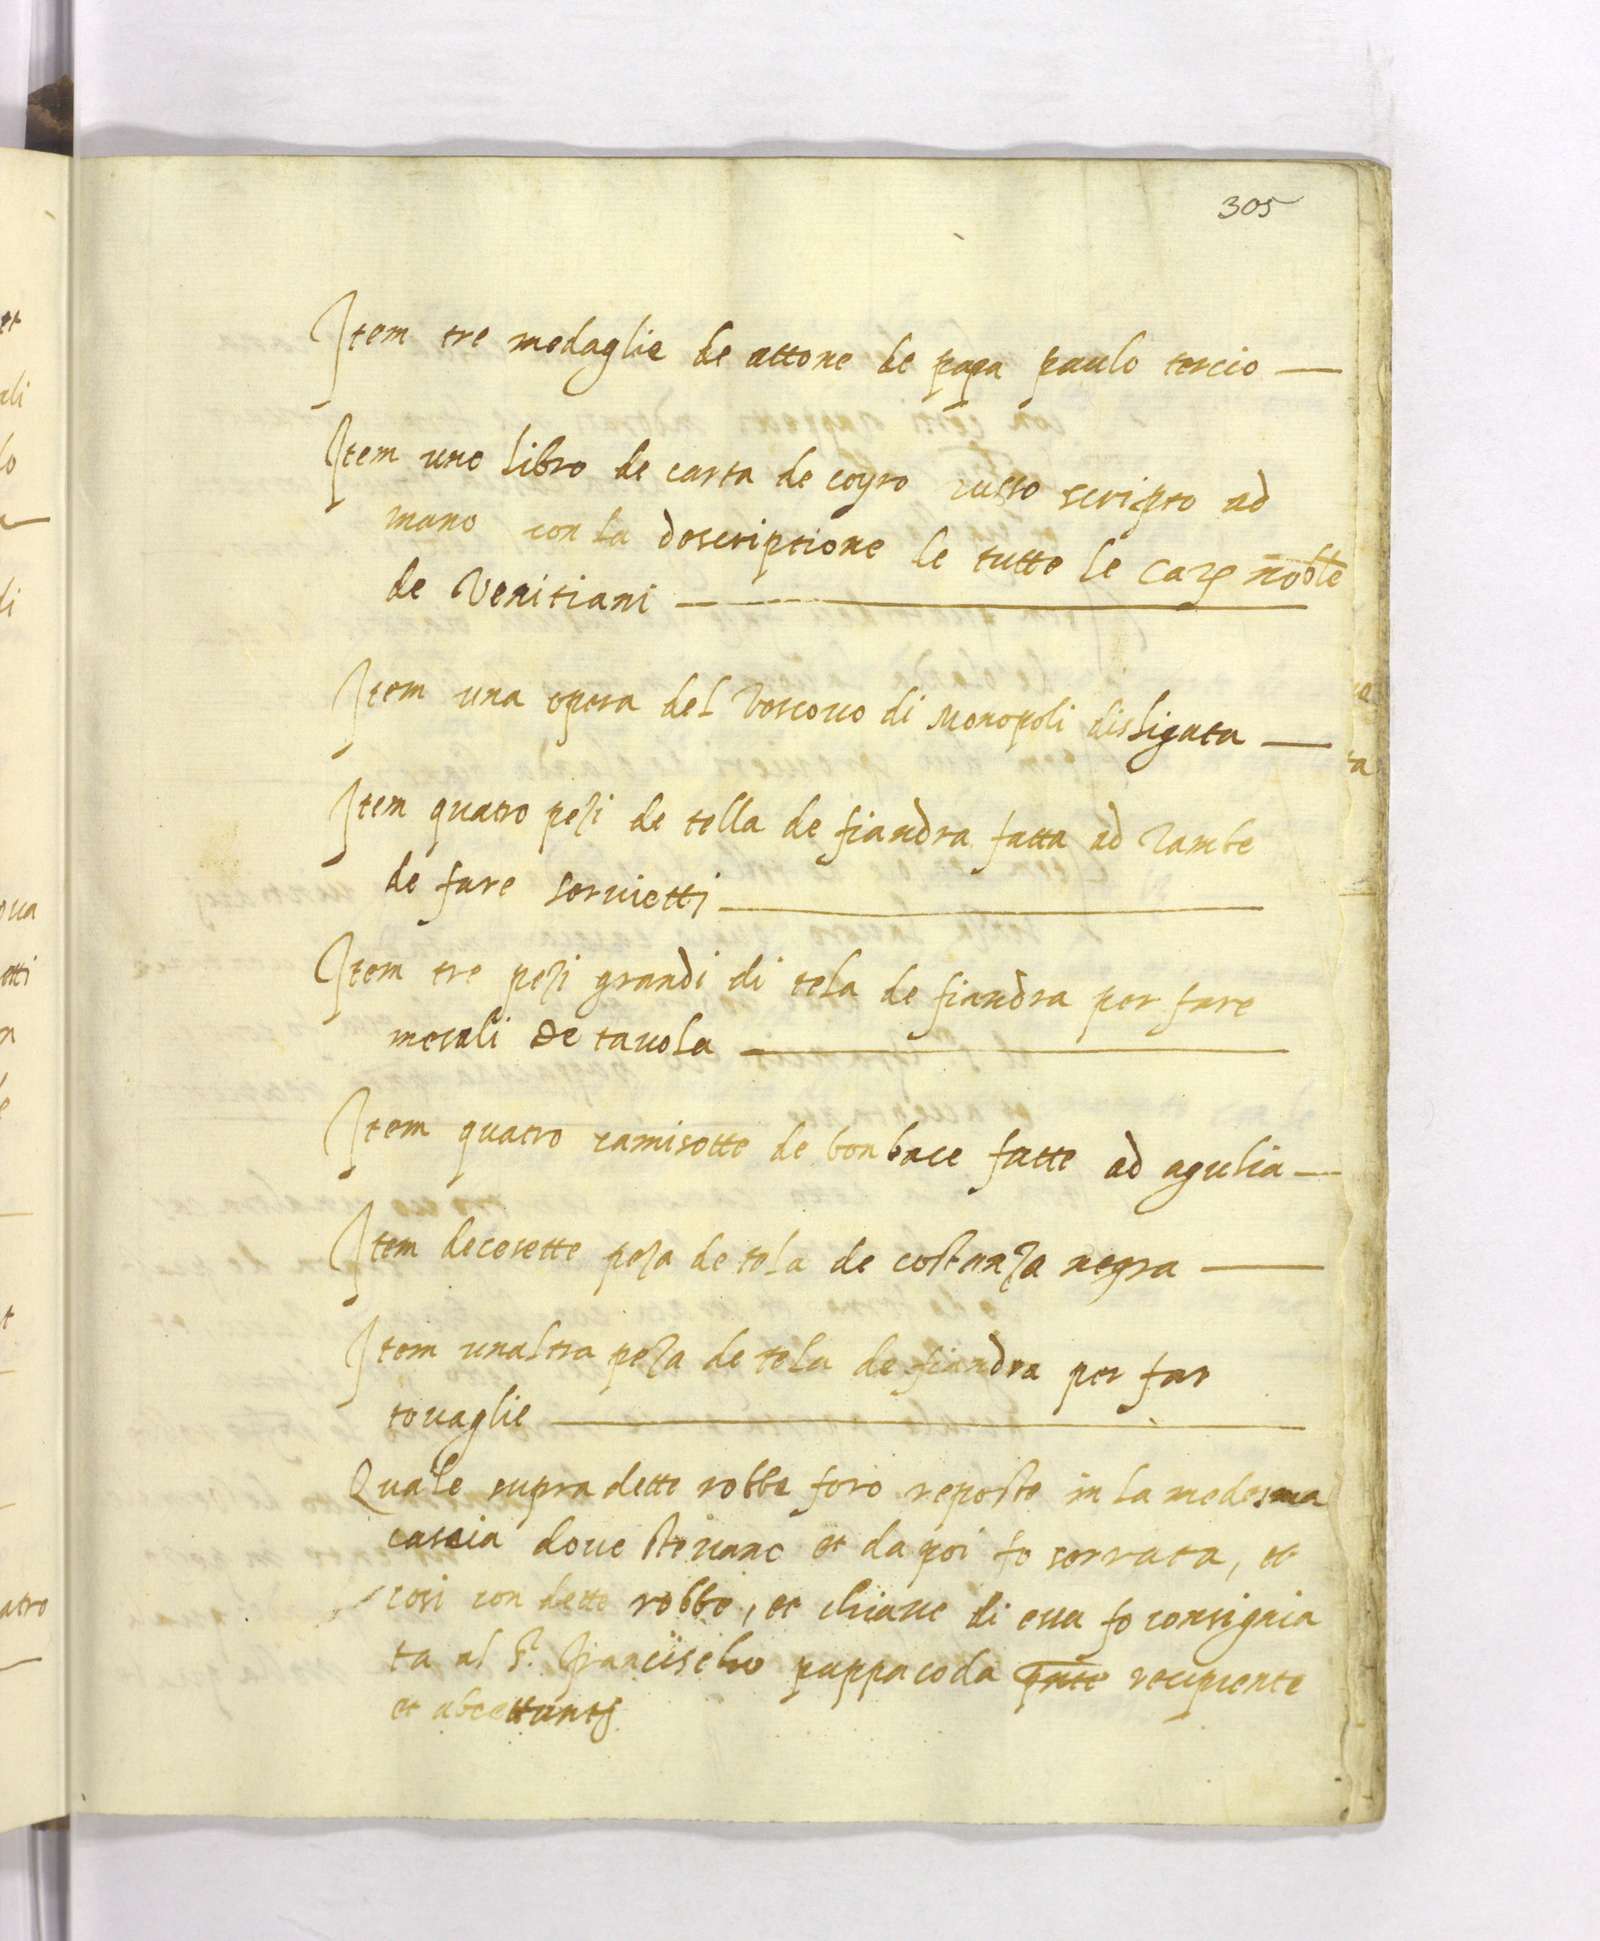 305
Item tre medaglie de attone de papa paulo tercio
Item uno libro de carta de coyro russo scripto ad
mano con la descriptione de tutte le case noble
de Venitiani
Item una opera del Vescovo di Monopoli disligata
Item quatro pezi de tella de fiandra fatta ad
de fare servietti
Item tre pezi grandi di tela de fiandra per fare
mesali de tauola
Item quatro camisotte de bonbace fatte ad agulia
Item decesette peza de tela de costanza negra
Item unaltra peza de tela de fiandra per far
touaglie
Quale supra dette robbe foro reposte in la medesma
cascia doue steuano et da poi fo serrata, et
cosi con dette robbe, et chiaue di essa fo consignia
ta al S.r Francischo pappacoda pnte recipiente
et abcettante